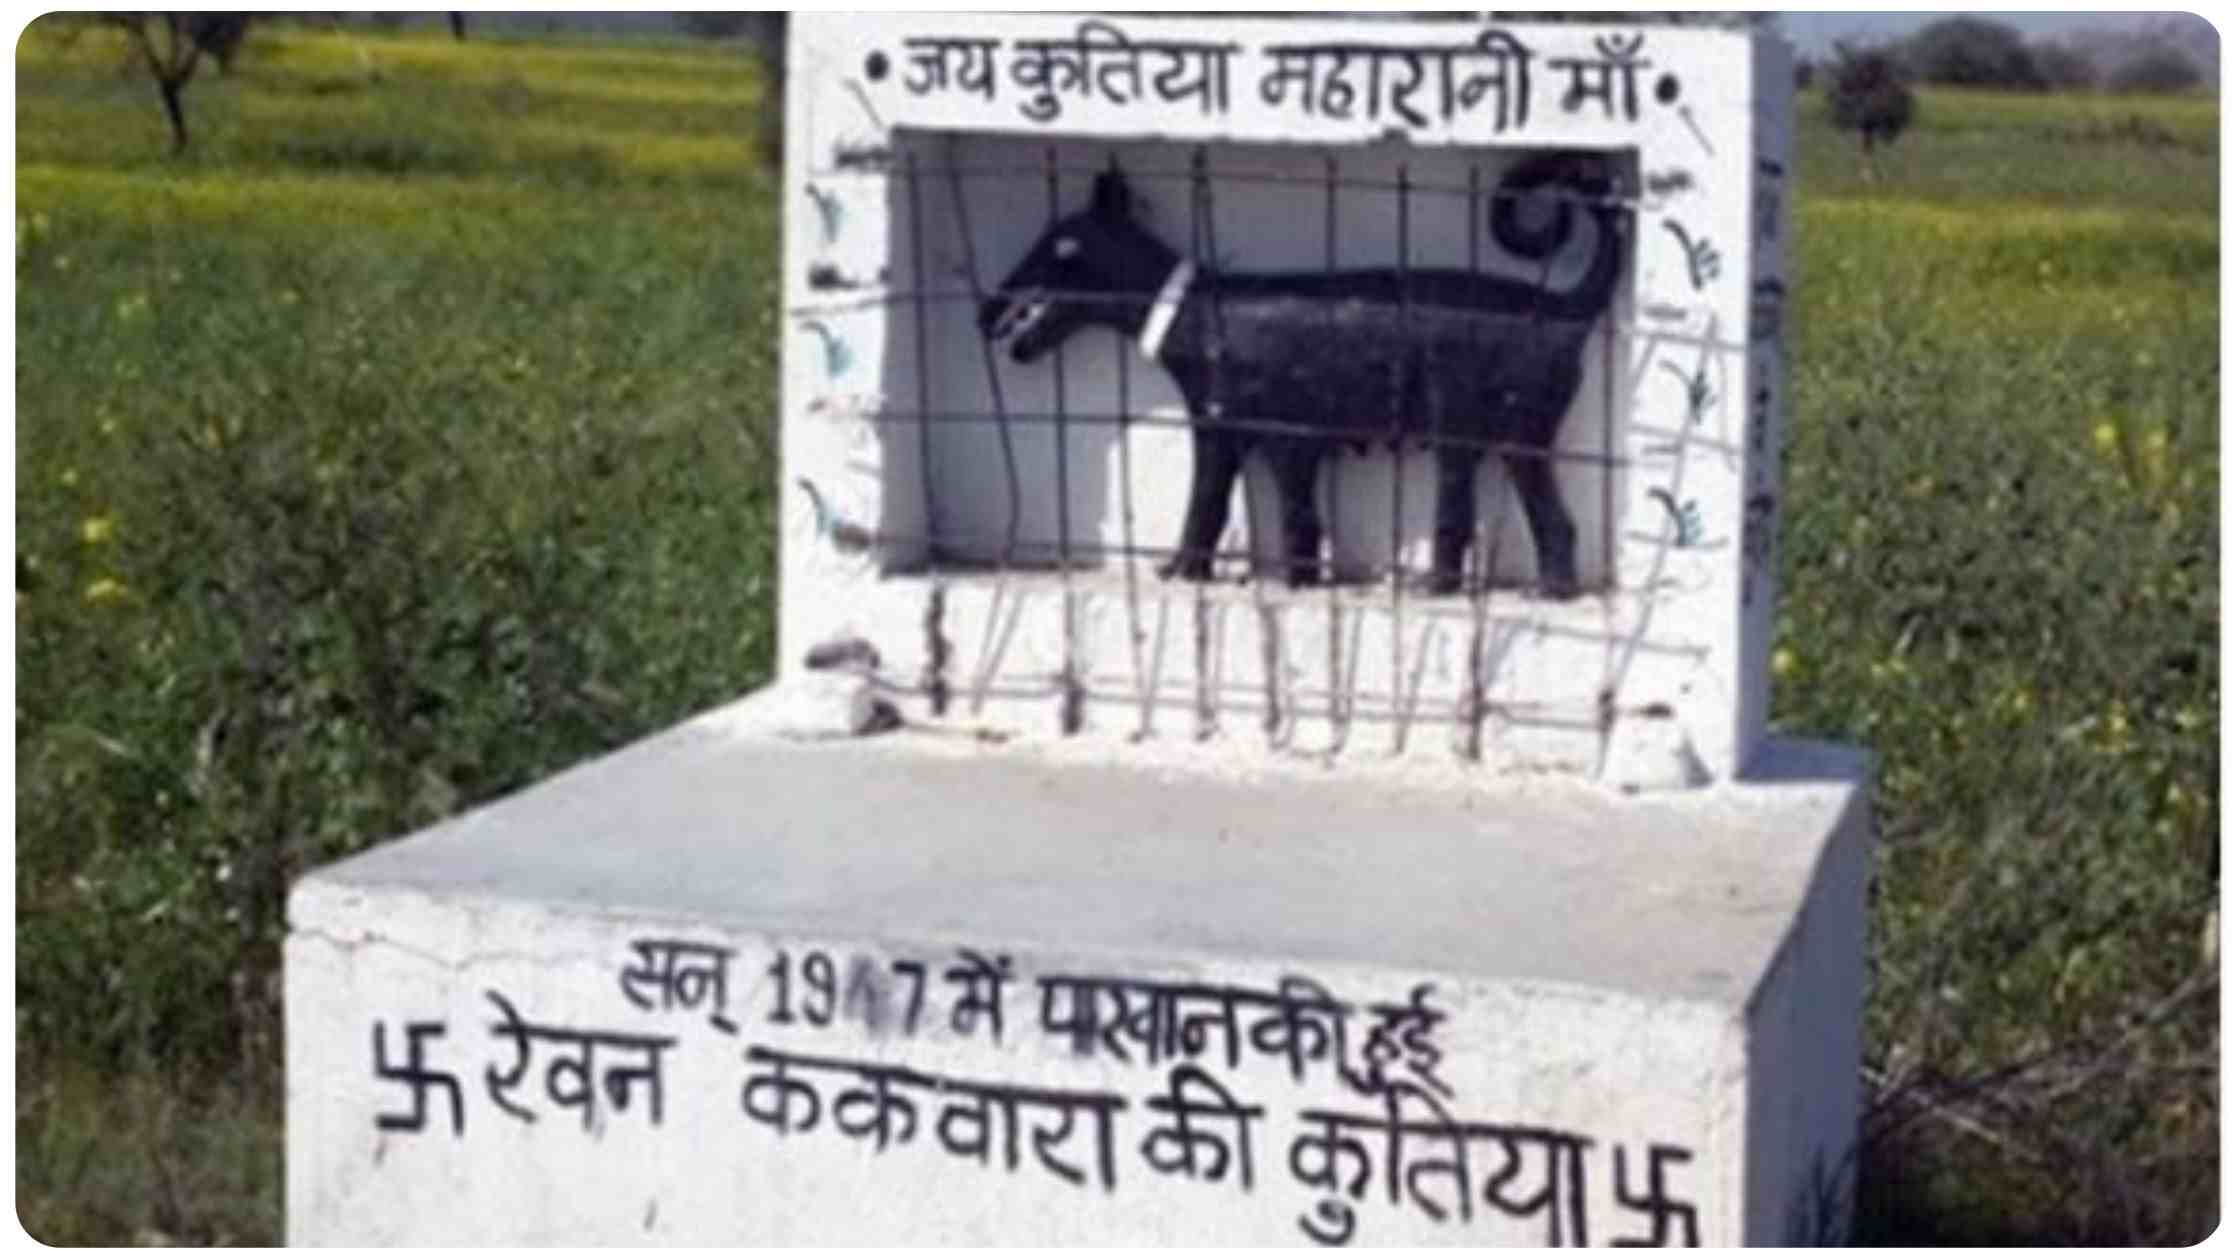 • जय कुतिया महारानी माँ •
सन् में पाखान की हुई
卐 रेवन ककवारा की कुतिया 卐